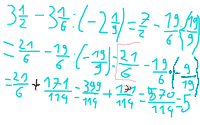 3 1/2 - 3 1/6 : (-2 1/9) = 7/2 - 19/6 : (-19/9)
= 21/6 - 19/6 : (-19/9) = 21/6 - 19/6 · (-9/19)
= 21/6 + 171/114 = 399/114 + 171/114 = 570/114 = 5